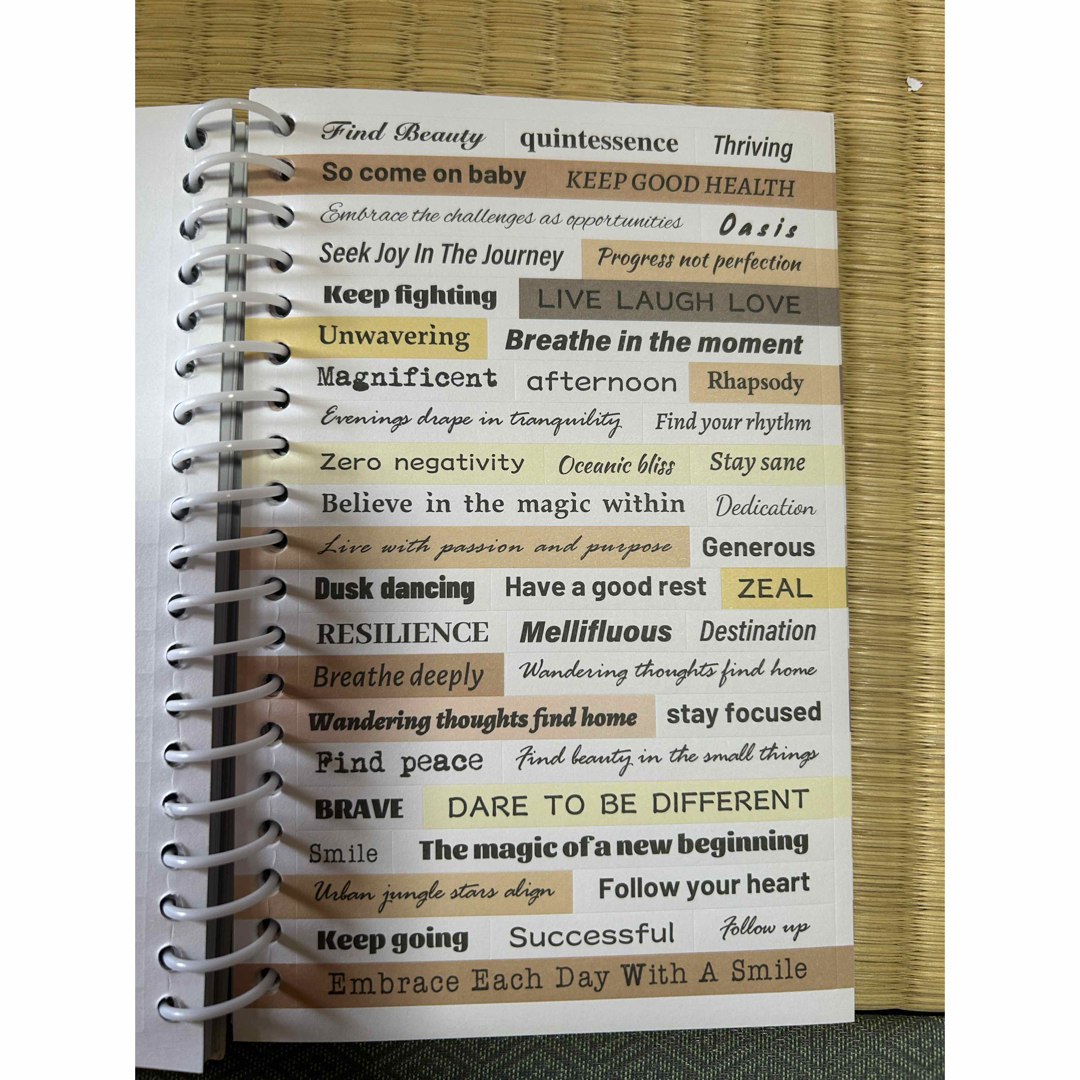 Find Beauty quintessence Thriving
So come on baby KEEP GOOD HEALTH
Embrace the challenges as opportunities Oasis
Seek Joy In The Journey Progress not perfection
Keep fighting LIVE LAUGH LOVE
Unwavering Breathe in the moment
Magnificent afternoon Rhapsody
Evenings drape in tranquility Find your rhythm
Zero negativity Oceanic bliss Stay sane
Believe in the magic within Dedication
Live with passion and purpose Generous
Dusk dancing Have a good rest ZEAL
RESILIENCE Mellifluous Destination
Breathe deeply Wandering thoughts find home
Wandering thoughts find home stay focused
Find peace Find beauty in the small things
BRAVE DARE TO BE DIFFERENT
Smile The magic of a new beginning
Urban jungle stars align Follow your heart
Keep going Successful Follow up
Embrace Each Day With A Smile